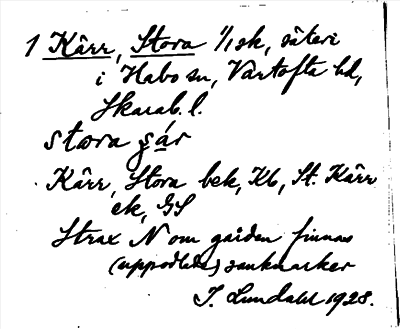 1 Kärr, Stora 1/1 sk, säteri
i Habo sn, Vartofta hd,
Skarab. l.
stora
Kärr, Stora bek, Kb, St. Kärr
ek, GS
Strax N om gården finnas
(uppodlade) sankmarker
I. Lundahl 1928.